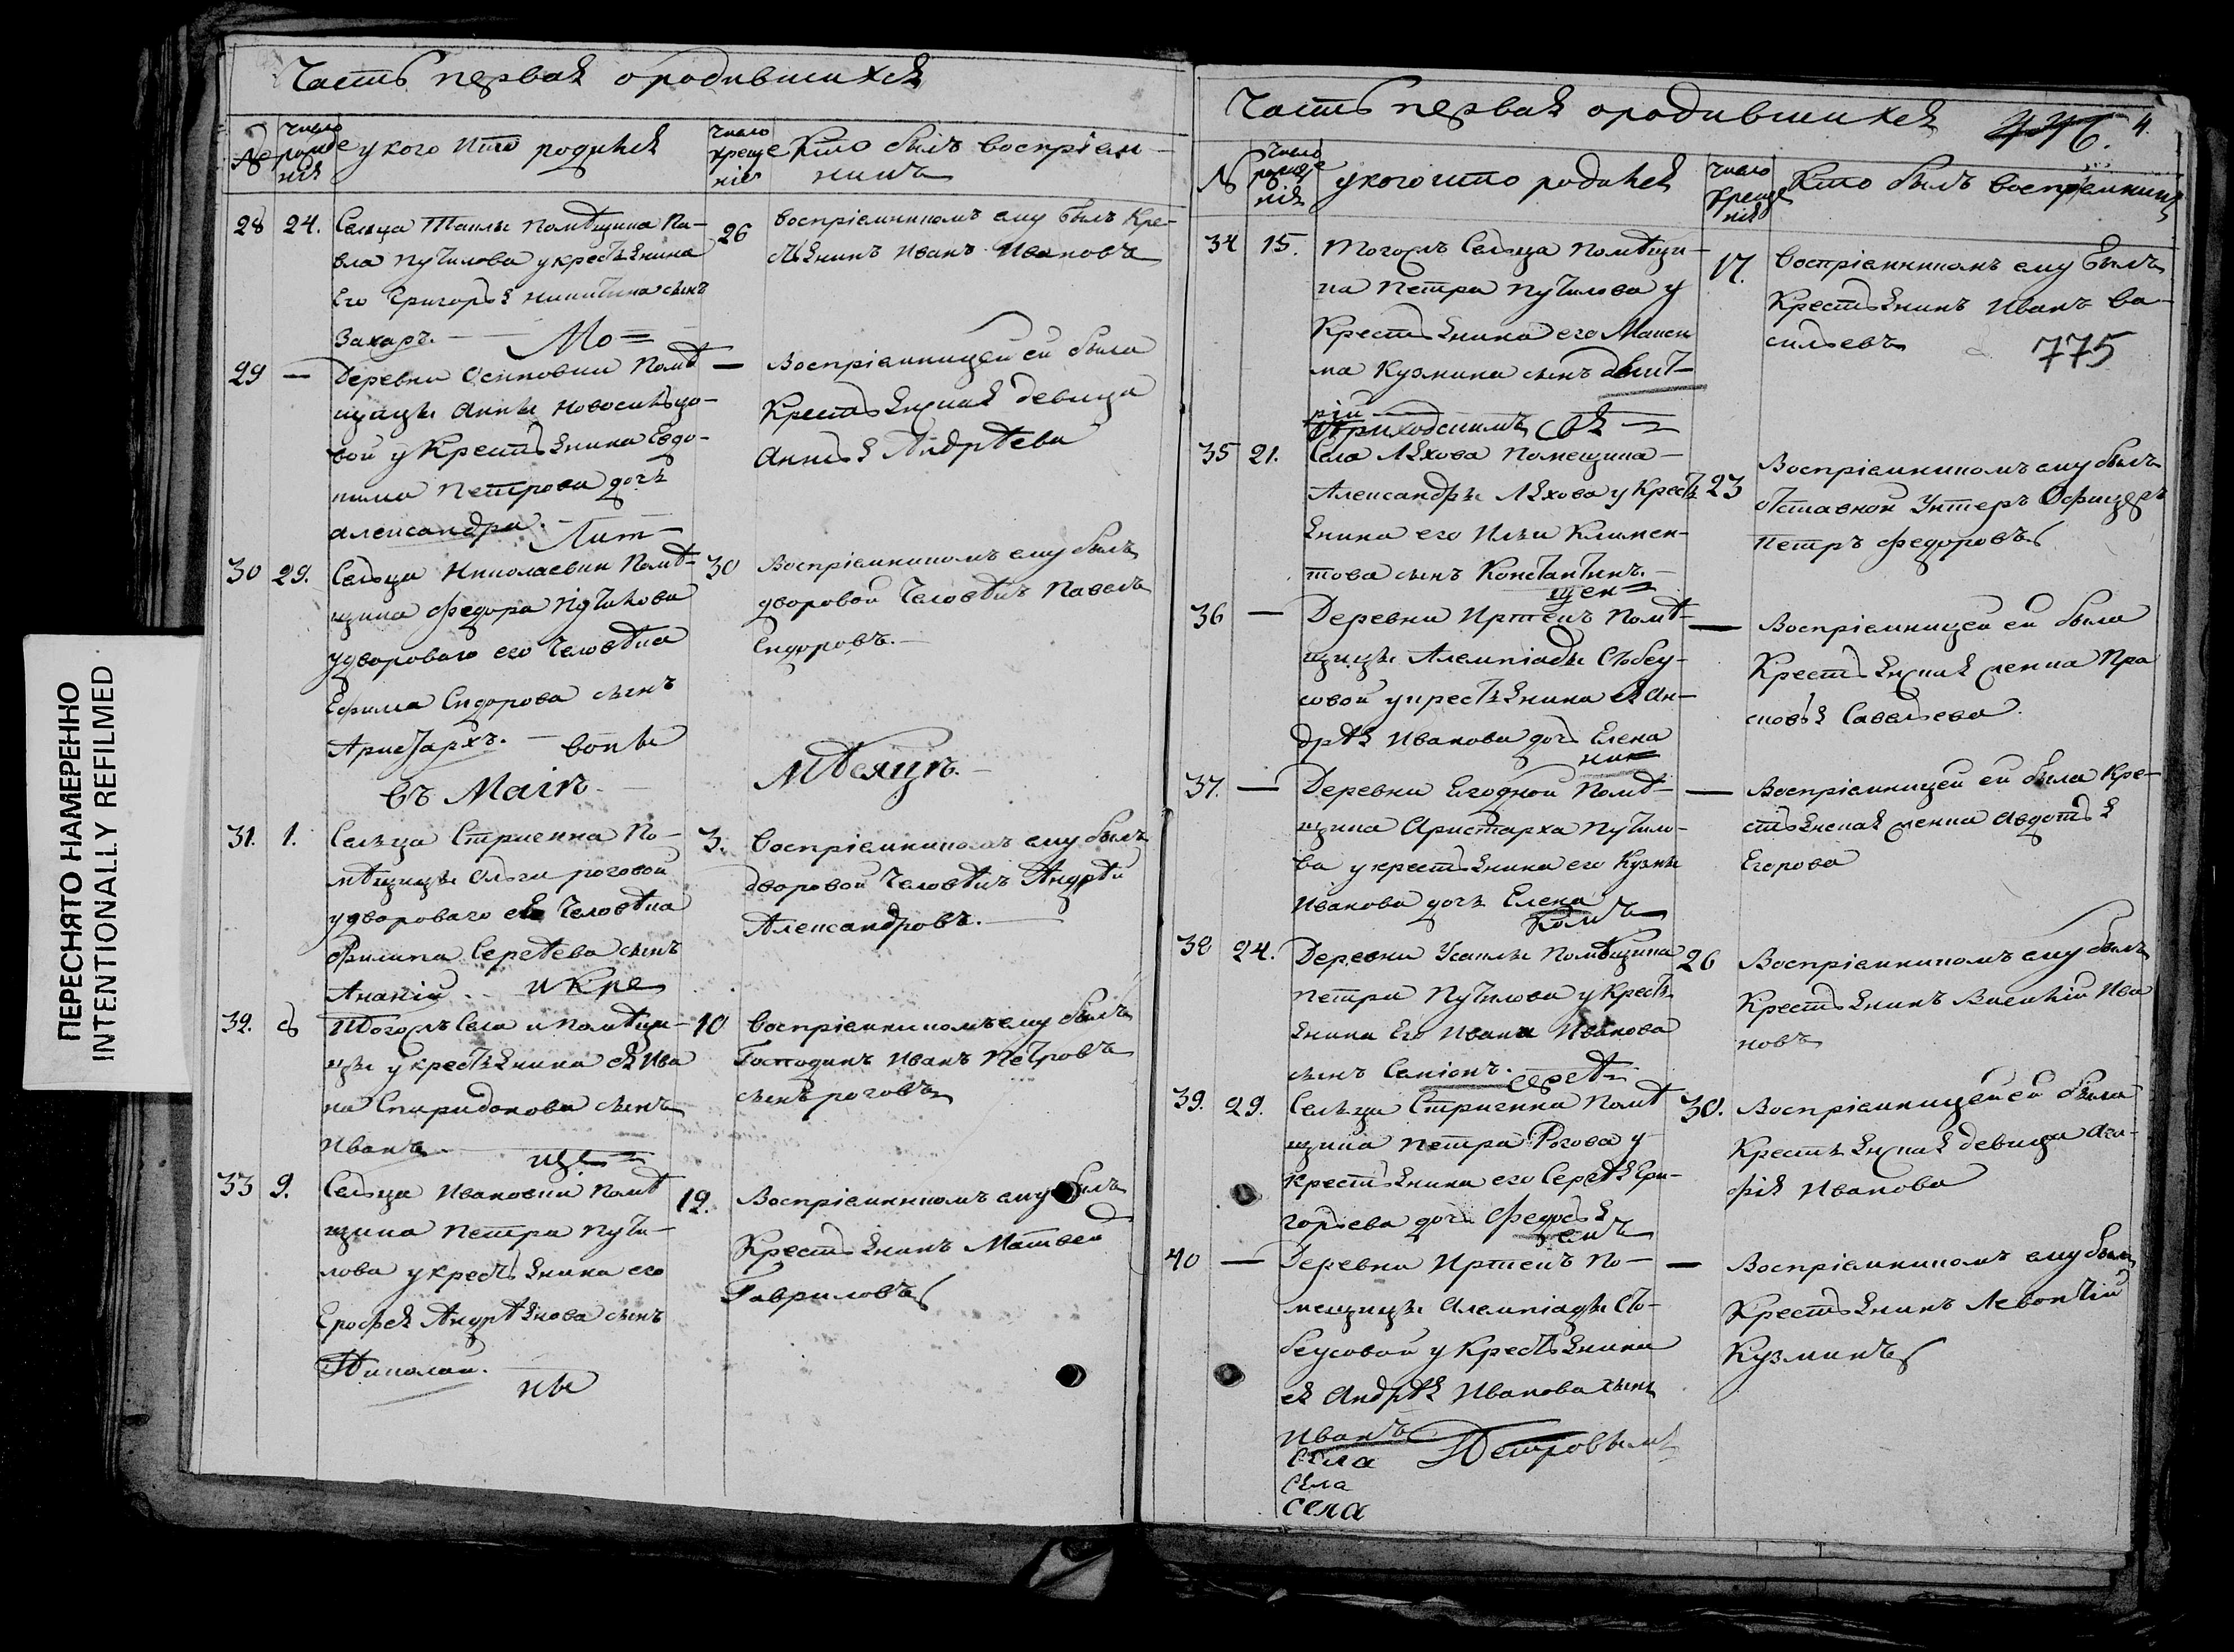 ПЕРЕСНЯТО НАМЕРЕННО
INTENTIONALLY REFILMED
Часть первая о родившихся
№
число рожде нія
у кого кто родился
число креще нія
Кто былъ воспріем-
никъ
28 24. Сельца помѣщика Па-
вла Путилова у крестьянина
Его Григорья Никитина сынъ
Захаръ. Мо
26 Воспріемникомъ ему былъ Кре-
стьянинъ Иванъ Ивановъ
29 — Деревни Осиновки Помѣ-
щицы Анны Новосильцо-
вой у Крестьянина Евдо-
кима Петрова дочь
Александра. Лит
— Воспріемницей ей была
Крестьянская девица
Анисья Андрѣева
30 29. Сельца Николаевки Помѣ-
щика Федора Путилова
у двороваго его Человѣка
Ефима Сидорова сынъ
Аристархъ. — вскпы
30 Воспріемникомъ ему былъ
дворовой Человѣкъ Павелъ
Сидоровъ.
Въ Маіѣ
Мѣсяцѣ.
31. 1. Сельца Стригина По-
мѣщицы Ольги Роговой
у двороваго ея Человѣка
Филипа Сергѣева сынъ
Ананій. и Кре
3. Воспріемникомъ ему былъ
дворовой Человѣкъ Андрѣй
Александровъ.
32. 8 Тогожъ Села и Помѣщи-
цы у крестьянина ея Ива
на Спиридонова сынъ
Иванъ. ще
10 Воспріемникомъ ему былъ
Господинъ Иванъ Петровъ
сынъ Роговъ
33 9. Сельца Ивановки Помѣ
щика Петра Пути-
лова у крестьянина его
Ерофея Андрѣянова сынъ
Николай. ны
12. Воспріемникомъ ему былъ
Крестьянинъ Матвей
Гавриловъ
Часть первая о родившихся
776. 4.
№
число рожде нія
у кого кто родился
число креще нія
Кто былъ воспріемникъ
34 15. Тогожъ Сельца Помѣщи-
ка Петра Путилова у
Крестьянина его Макси
ма Кузмина сынъ Дмит-
рій
Приходскимъ Свя
17. Воспріемникомъ ему былъ
Крестьянинъ Иванъ Ва-
сильевъ
775
35 21. Села Ляхова Помещика
Александры Ляхова у Кресть
янина его Ильи Климен-
това сынъ Константинъ.
щен
23 Воспріемникомъ ему былъ
отставной Унтеръ Офицеръ
Петръ Федоровъ
36 — Деревни Иртекъ Помѣ-
щицы Алемпіады Стобеу-
совой у крестьянина ея Ан-
дрѣя Иванова дочь Елена
ник
— Воспріемницей ей была
Крестьянская женка Пра
сковья Савельева.
37. — Деревни Ягодной Помѣ-
щика Аристарха Путило-
ва у крестьянина его Кузмы
Иванова дочь Елена
комъ
— Воспріемницей ей была Кре-
стьянская женка Авдотья
Егорова
38 24. Деревни Помѣщика
Петра Путилова у Кресть
янина Его Ивана Иванова
сынъ Семіонъ. Сергѣ
26 Воспріемникомъ ему былъ
Крестьянинъ Василій Ива
новъ
39. 29. Сельца Стригина Помѣ
щика Петра Рогова у
крестьянина его Сергѣя Гри-
горьева дочь Федосья
емъ
30. Воспріемницей ей была
Крестьянская девица Ага-
фія Иванова
40 — Деревни Иртекъ По-
мещицы Алемпіады Сто-
беусовой у Крестьянина
ея Андрѣя Иванова сынъ
Иванъ Петровымъ
села
села
села
— Воспріемникомъ ему былъ
Крестьянинъ Левонтій
Кузминъ